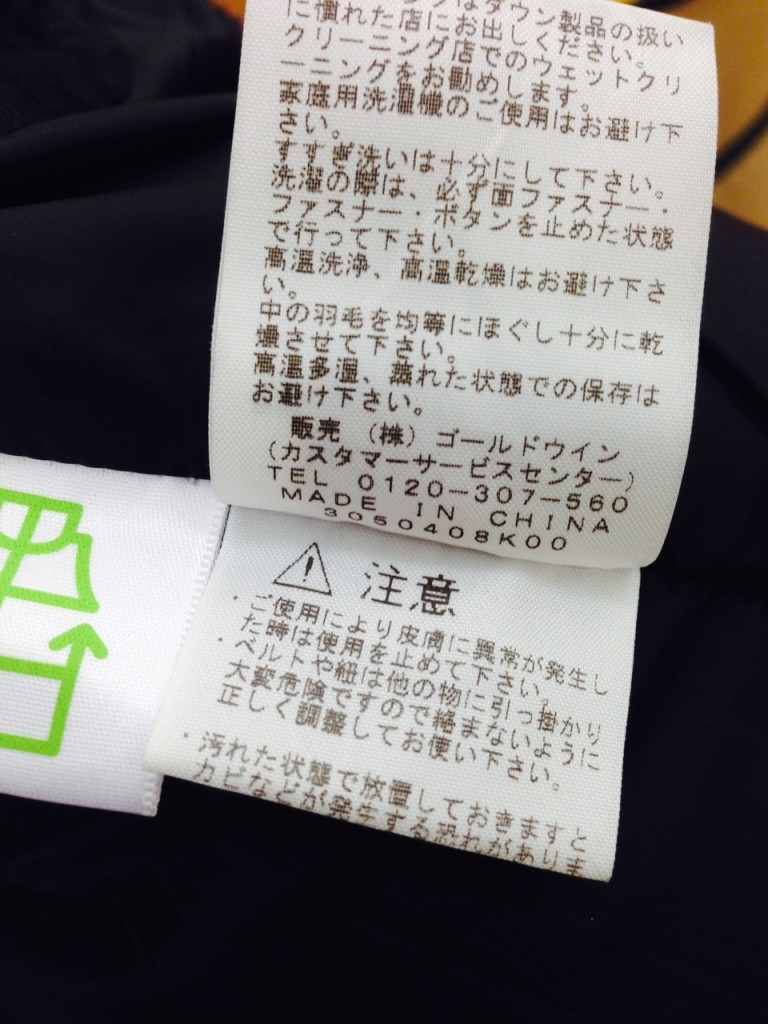 はダウン製品の扱い
に慣れた店にお出しください。
クリーニング店でのウェットクリ
ーニングをお勧めします。
家庭用洗濯機のご使用はお避け下
さい。
すすぎ洗いは十分にして下さい。
洗濯の際は、必ず面ファスナー・
ファスナー・ボタンを止めた状態
で行って下さい。
高温洗浄、高温乾燥はお避け下さ
い。
中の羽毛を均等にほぐし十分に乾
燥させて下さい。
高温多湿、蒸れた状態での保存は
お避け下さい。
販売 (株) ゴールドウイン
(カスタマーサービスセンター)
TEL 0120-307-560
MADE IN CHINA
3050408K00
注意
・ご使用により皮膚に異常が発生し
た時は使用を止めて下さい。
・ベルトや紐は他の物に引っ掛かり
大変危険ですので絡まないように
正しく調整してお使い下さい。
・汚れた状態で放置しておきますと
カビなどが発生する恐れがありま